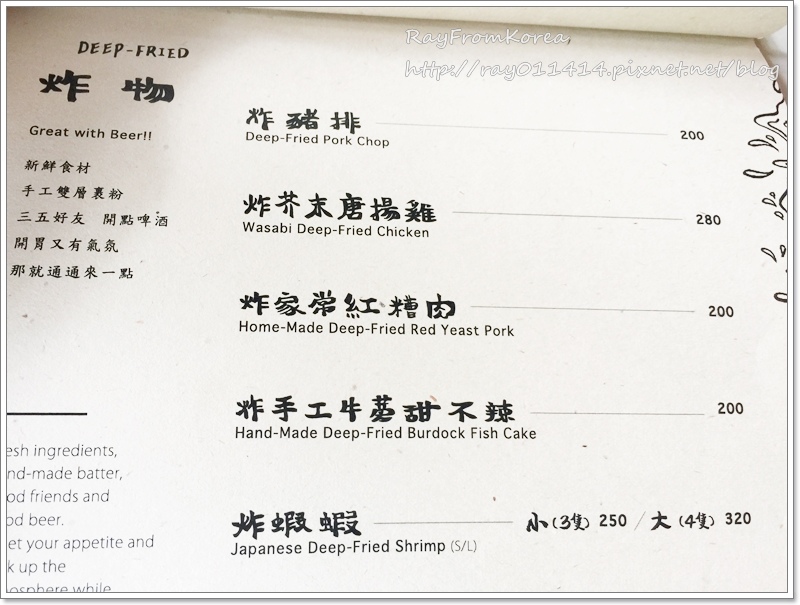 RayFromKorea
http://ray011414.pixnet.net/blog
DEEP-FRIED
炸物
Great with Beer!!
新鮮食材
手工雙層裹粉
三五好友 開點啤酒
開胃又有氣氛
那就通通來一點
esh ingredients,
nd-made batter,
od friends and
od beer.
et your appetite and
k up the
osphere while
炸豬排 200
Deep-Fried Pork Chop
炸芥末唐揚雞 280
Wasabi Deep-Fried Chicken
炸家常紅糟肉 200
Home-Made Deep-Fried Red Yeast Pork
炸手工牛蒡甜不辣 200
Hand-Made Deep-Fried Burdock Fish Cake
炸蝦蝦 小(3隻) 250 / 大(4隻) 320
Japanese Deep-Fried Shrimp (S/L)